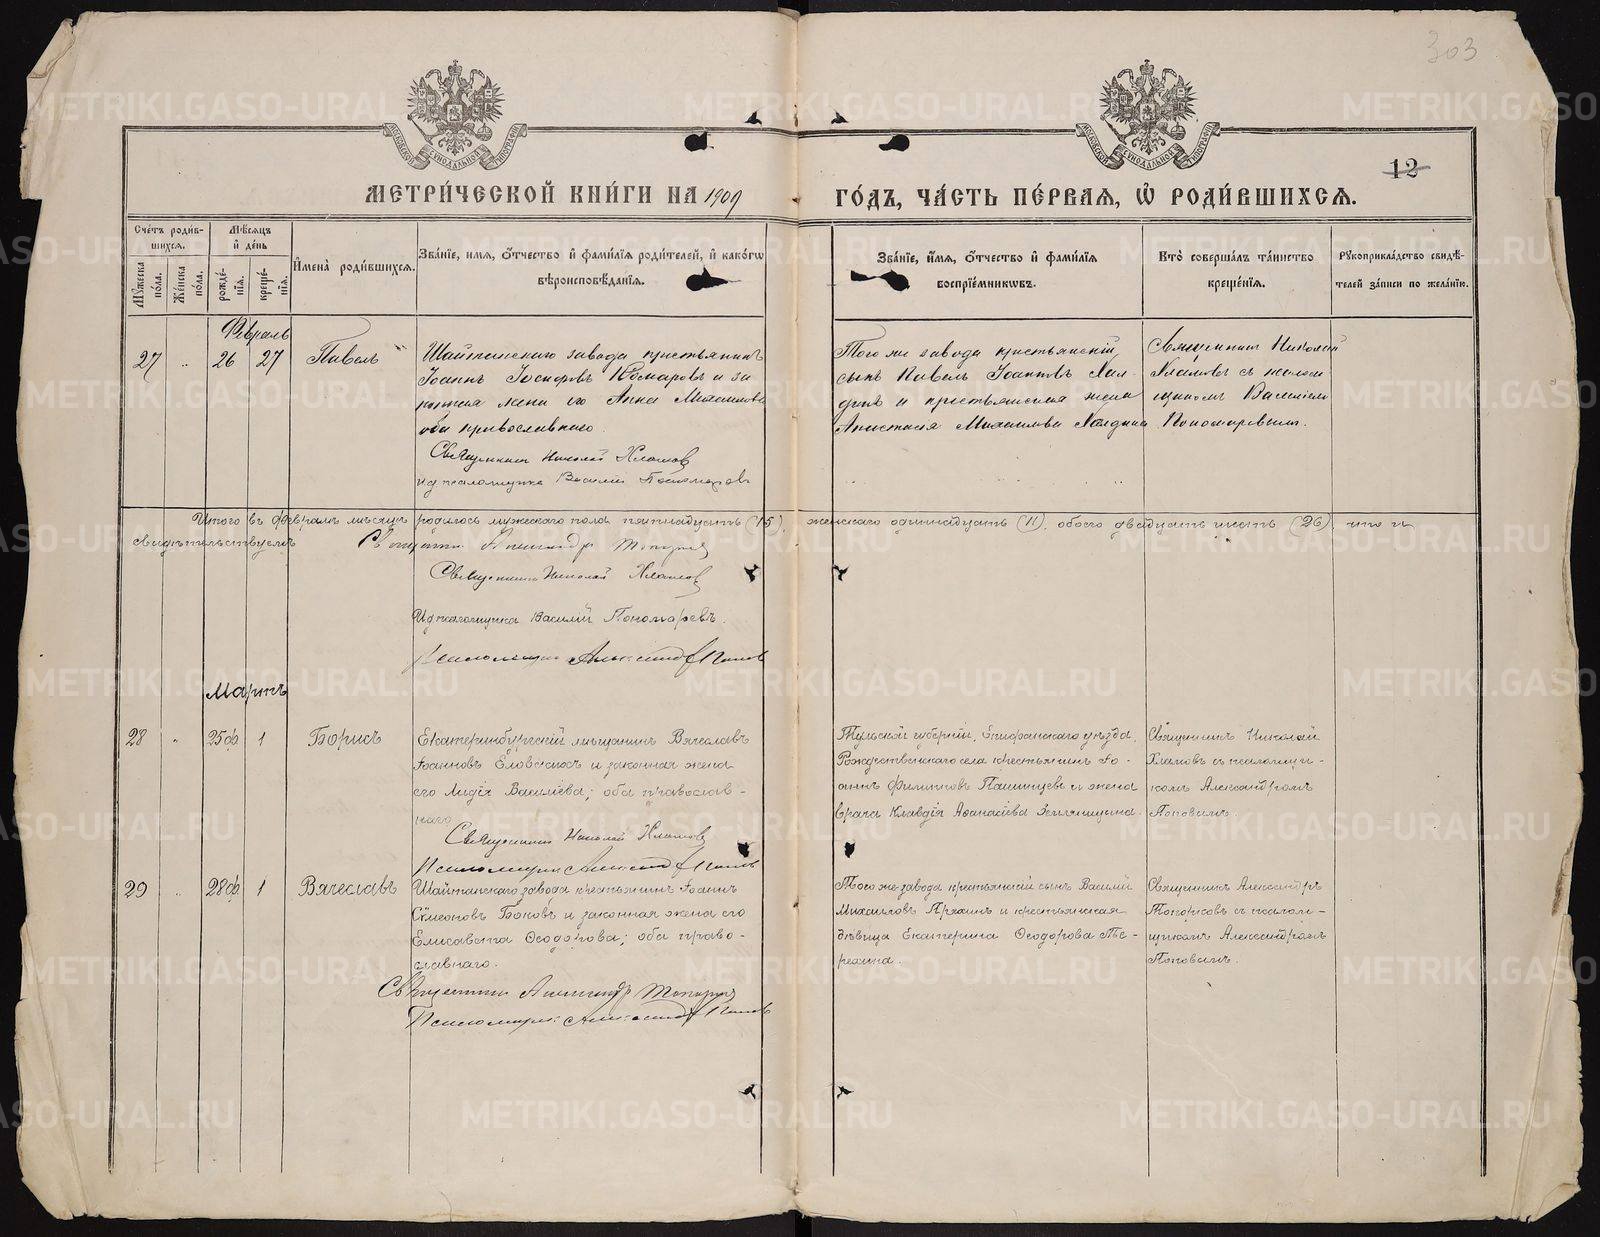 303
12
МОСКОВСКОЙ СѴНОДАЛЬНОЙ ТИПОГРАФІИ
МОСКОВСКОЙ СѴНОДАЛЬНОЙ ТИПОГРАФІИ
МЕТРИ́ЧЕСКОЙ КНИ́ГИ НА 1909
ГО́ДЪ, ЧА́СТЬ ПЕ́РВАЯ, Ѽ РОДИ́ВШИХСЯ.
Сче́тъ роди́в-
шихся.
Мꙋ́жеска по́ла.
Же́нска по́ла.
Мѣ́сяцъ
и҆ де́нь
рожде́-
нїя.
креще́-
нїя.
И҆мена̀ роди́вшихся.
Зва́нїе, имѧ, ѻ҆́тчество и҆ фами́лїѧ роди́телей, и҆ како́гѡ
вѣроисповѣ́данїѧ.
Зва́нїе, и҆́мѧ, ѻ҆́тчество и҆ фами́лїѧ
воспрїе́мникѡвъ.
Кто̀ соверша́лъ та́инство
креще́нїѧ.
Рꙋкоприкла́дство свидѣ́-
телей за́писи по жела́нїю.
Февраль
27 „ 26 27 Павелъ
Шайтанскаго завода крестьянинъ
Іоаннъ Іосифовъ Комаровъ и за
конная жена его Анна Михаилова
оба православнаго.
Священникъ Николай Хламовъ
И д псаломщика Василій Пономаревъ
Того же завода крестьянскій
сынъ Павелъ Іоанновъ Хал-
динъ и крестьянская жена
Анастасія Михаилова Халдина
Священникъ Николай
Хламовъ съ псалом
щикомъ Василіемъ
Пономаревымъ.
Итого въ февралѣ мѣсяцѣ родилось мужескаго пола пятнадцать (15), женскаго одинадцать (11), обоего двадцать шесть (26), что и
свидѣтельствуемъ Священникъ Александръ Топорковъ
Священникъ Николай Хламовъ
И д псаломщика Василій Пономаревъ.
Псаломщикъ Александръ Поповъ
Мартъ
28 „ 25ф 1 Борисъ
Екатеринбургскій мѣщанинъ Вячеславъ
Іоанновъ Еловскихъ и законная жена
его Лидія Василіева; оба православ-
наго
Священникъ Николай Хламовъ
Псаломщикъ Александръ Поповъ
Тульской губерніи, Епифанскаго уѣзда,
Рождественскаго села крестьянинъ Іо-
аннъ Филипповъ Пашинцевъ и жена
врача Клавдія Аѳанасіева Земляницына.
Священникъ Николай
Хламовъ съ псаломщи-
комъ Александромъ
Поповымъ.
29 „ 28ф 1 Вячеславъ
Шайтанскаго завода крестьянинъ Іоаннъ
Сѵмеоновъ Боковъ и законная жена его
Елисавета Ѳеодорова; оба право-
славнаго.
Священникъ Александръ Топорковъ
Псаломщикъ Александръ Поповъ
Того же завода крестьянскій сынъ Василій
Михаиловъ Аряхинъ и крестьянская
дѣвица Екатерина Ѳеодорова Те-
рехина.
Священникъ Александръ
Топорковъ съ псалом-
щикомъ Александромъ
Поповымъ.
METRIKI.GASO-URAL.RU